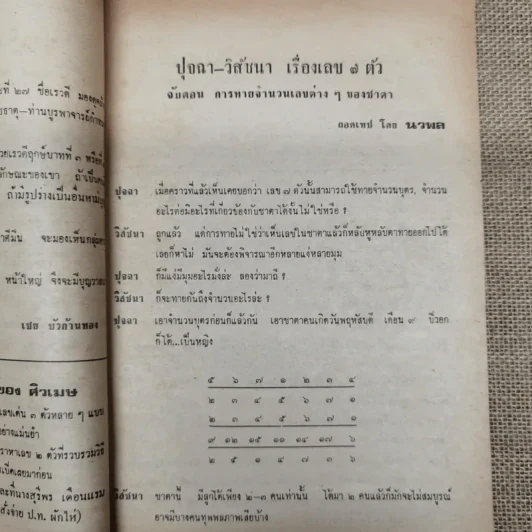 ะที่ ๒๗ ชื่อเรวดี
ธาตุ–ท่านบูรพาจารย์
วยเรวดีฤกษ์บาทที่ ๓ หรือที่
ลักษณะของเขา ถ้าเป็น
ถ้ามิรูปร่างเป็นอื่น
าศีมีน จะมองเห็น
หน้าใหญ่ จึงจะมีบุญวาสนา
เชย บัวก้านทอง
ของ ศิวเมษ
เลขเด่น ๓ ตัวหลาย ๆ แบบ
อย่างแม่นยำ
ราหาเลข ๒ ตัวที่รวบรวมวิธี
เปิดเผยมาก่อน
ละที่นางสุรีพร เดือนแรม
สั่งจ่าย ป.ท. ผักไห่)
ปุจฉา–วิสัชนา เรื่องเลข ๗ ตัว
จับตอน การทายจำนวนเลขต่าง ๆ ของชาตา
ถอดเทป โดย นวพล
ปุจฉา เมื่อคราวที่แล้วเห็นเคยบอกว่า เลข ๗ ตัวนั้นสามารถใช้ทายจำนวนบุตร, จำนวน
อะไรต่อมิอะไรที่เกี่ยวข้องกับชาตาได้งั้นไม่ใช่หรือ ?
วิสัชนา ถูกแล้ว แต่การทายไม่ใช่ว่าเห็นเลขในชาตาแล้วก็หลับหูหลับตาทายออกไปได้
เลยก็หาไม่ มันจะต้องพิจารณาอีกหลายแง่หลายมุม
ปุจฉา ก็มีแง่มีมุมอะไรมั่งล่ะ ลองว่ามาถี ?
วิสัชนา ก็จะทายกันถึงจำนวนอะไรล่ะ ?
ปุจฉา เอาจำนวนบุตรก่อนก็แล้วกัน เอาชาตาคนเกิดวันพฤหัสบดี เดือน ๙ ปีวอก
ก็ได้...เป็นหญิง
๕ ๖ ๗ ๑ ๒ ๓ ๔
๒ ๓ ๔ ๕ ๖ ๗ ๑
๒ ๓ ๔ ๕ ๖ ๗ ๑
๙ ๑๒ ๑๕ ๑๑ ๑๔ ๑๗ ๖
๒ ๕ ๑ ๔ ๗ ๓ ๖
วิสัชนา ชาตานี้ มีลูกได้เพียง ๒–๓ คนเท่านั้น ได้มา ๒ คนแล้วก็มักจะไม่สมบูรณ์
อาจมีบางคนทุพพลภาพเสียบ้าง